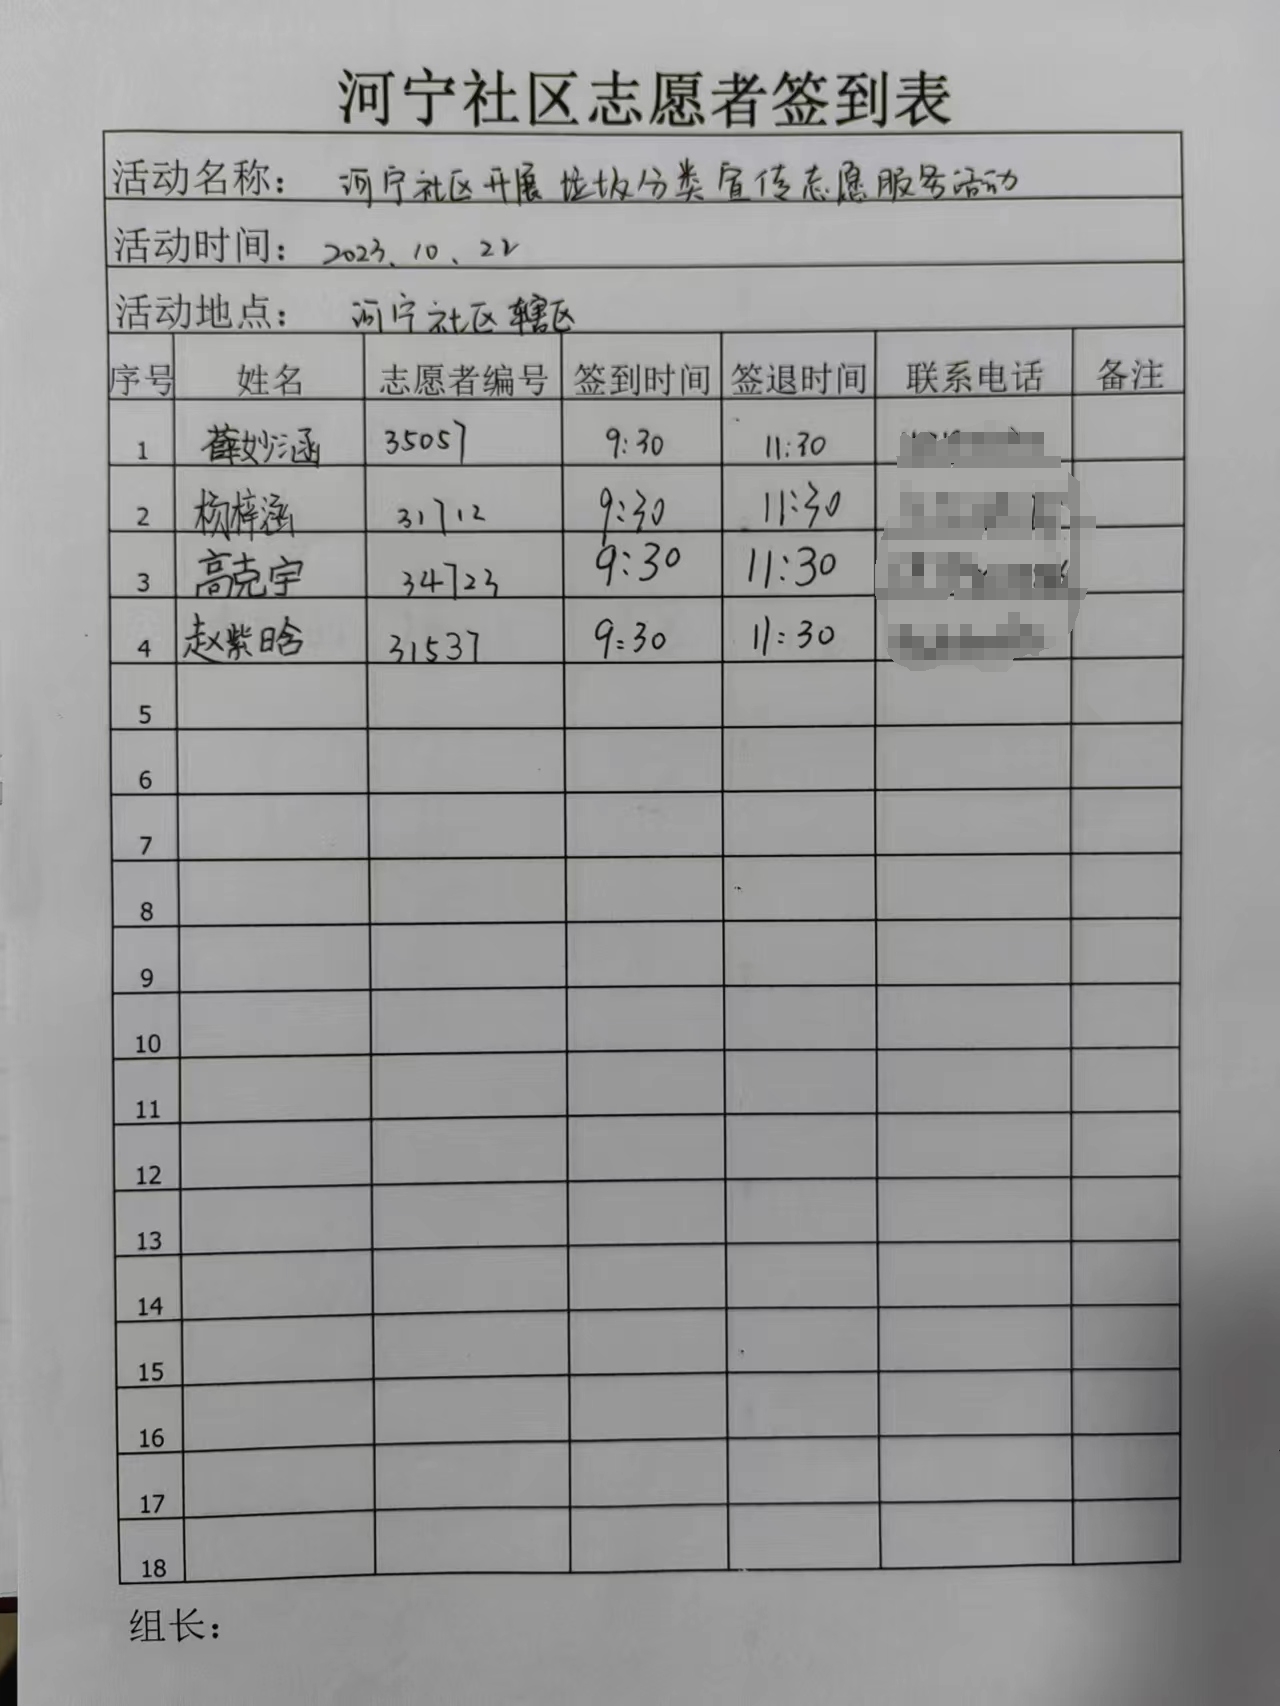 河宁社区志愿者签到表
活动名称： 河宁社区开展垃圾分类宣传志愿服务活动
活动时间： 2023.10.22
活动地点： 河宁社区辖区
序号 姓名 志愿者编号 签到时间 签退时间 联系电话 备注
1 薛妙涵 35057 9:30 11:30
2 杨梓涵 31712 9:30 11:30
3 高克宇 34723 9:30 11:30
4 赵紫晗 31537 9:30 11:30
5
6
7
8
9
10
11
12
13
14
15
16
17
18
组长：